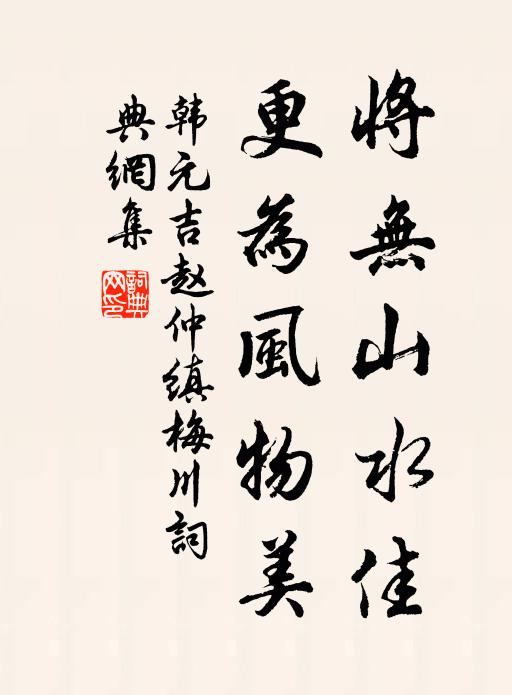 將無山水佳
更為風物美
韩元吉赵仲缜梅川詞
典網集
詞典网印